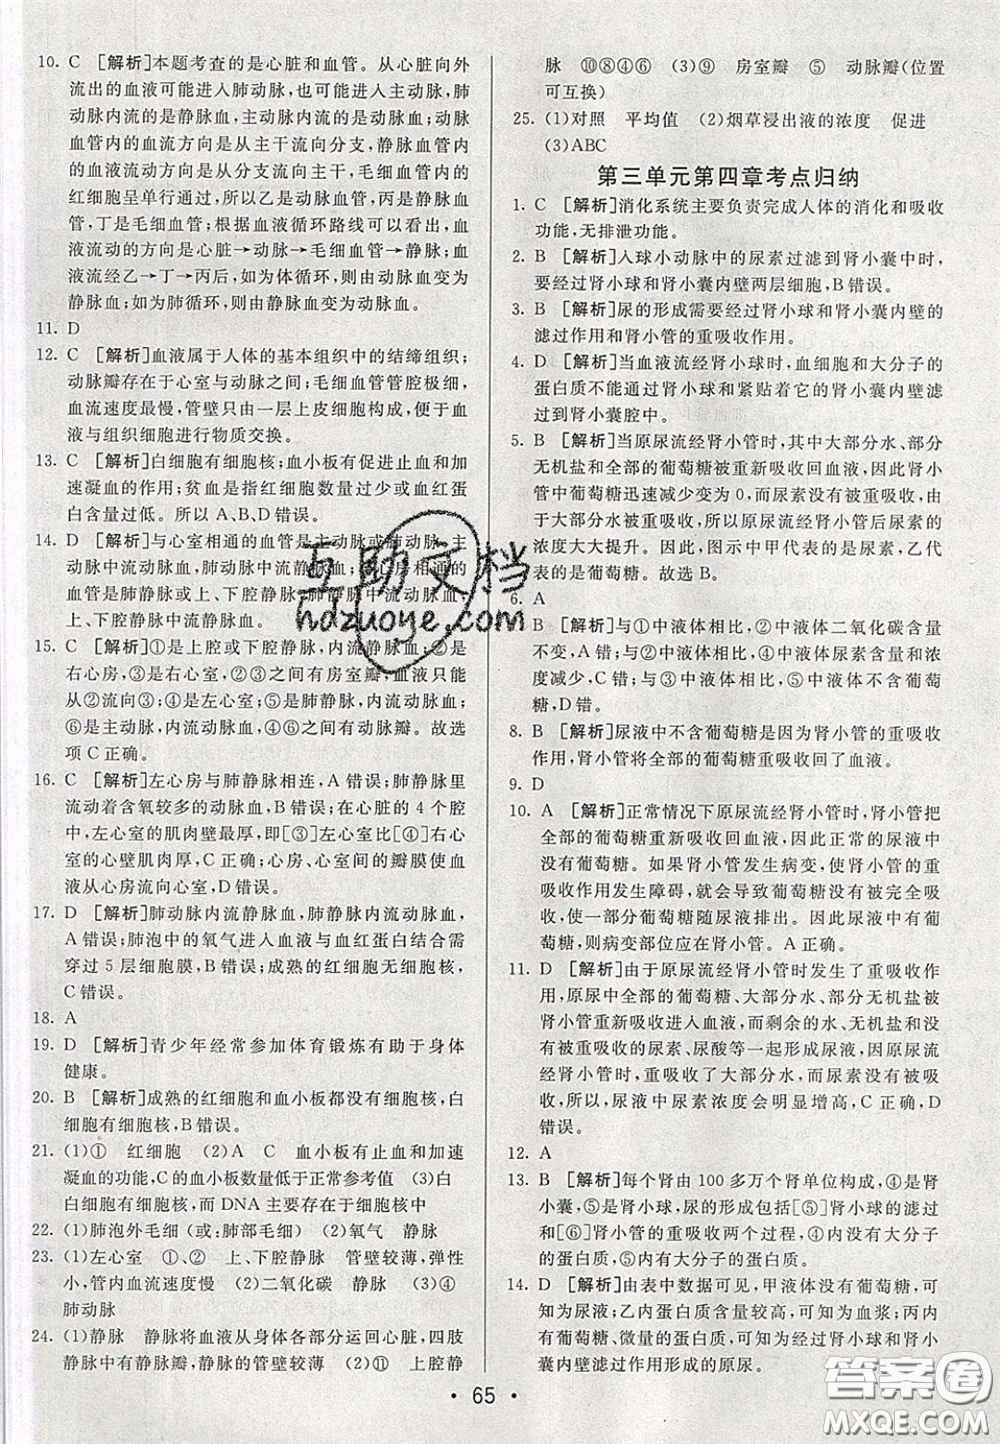 10. C [解析]本题考查的是心脏和血管。从心脏向外
流出的血液可能进入肺动脉,也可能进入主动脉,肺
动脉内流的是静脉血,主动脉内流的是动脉血;动脉
血管内的血流方向是从主干流向分支,静脉血管内的
血液流动方向是从分支流向主干。毛细血管内的
红细胞呈单行通过,乙是动脉血管,丙是静脉血管,
丁是毛细血管;根据血液循环路线可以看出,血液
流动的方向是心脏→动脉→毛细血管→静脉;血
液流经乙→丁→丙后,如为体循环,则由动脉血变为
静脉血;如为肺循环,则由静脉血变为动脉血。
11. D
12. C [解析]血液属于人体的基本组织中的结缔组织;
动脉瓣存在于心室与动脉之间;毛细血管管腔极细,
血流速度最慢,管壁只由一层上皮细胞构成,便于血
液与组织细胞进行物质交换。
13. C [解析]白细胞有细胞核;血小板有促进止血和加
速凝血的作用;贫血是指红细胞数量过少或血红蛋
白含量过低。所以 A、B、D 错误。
14. D [解析]与心室相通的血管是主动脉或肺动脉,主
动脉中流动脉血,肺动脉中流静脉血;与心房相通的
血管是肺静脉或上、下腔静脉,肺静脉中流动脉血,
上、下腔静脉中流静脉血。
15. C [解析]①是上腔或下腔静脉,内流静脉血;②是
右心房,③是右心室,②③之间有房室瓣,血液只能
由②流向③;④是肺动脉,内流静脉血;⑤是左心室;
⑥是主动脉,内流动脉血,④⑥之间有动脉瓣。故选
项 C 正确。
16. C [解析]左心房与肺静脉相连,A 错误;肺静脉里
流动着含氧较多的动脉血,B 错误;在心脏的 4 个腔
中,左心室的肌肉壁最厚,即[③]左心室比[④]右心
室的心壁肌肉厚,C 正确;心房、心室间的瓣膜使血
液从心房流向心室,D 错误。
17. D [解析]肺动脉内流静脉血,肺静脉内流动脉血,
A 错误;肺泡中的氧气进入血液与血红蛋白结合需
穿过 5 层细胞膜,B 错误;成熟的红细胞无细胞核,
C 错误。
18. A
19. D [解析]青少年经常参加体育锻炼有助于身体
健康。
20. B [解析]成熟的红细胞和血小板都没有细胞核,白
细胞有细胞核,B 错误。
21. (1)① 红细胞 (2)A C 血小板有止血和加速
凝血的功能,C的血小板数量低于正常参考值 (3)白
白细胞有细胞核,而 DNA 主要存在于细胞核中
22. (1)肺泡外毛细(或:肺部毛细) (2)氧气 静脉
23. (1)左心室 ①、② 上、下腔静脉 管壁较薄,弹性
小,管内血流速度慢 (2)二氧化碳 静脉 (3)④
肺动脉
24. (1)静脉 静脉将血液从身体各部分运回心脏,四肢
静脉中常有静脉瓣,静脉的管壁较薄 (2)⑪ 上腔静
脉 ⑩⑧④⑥ (3)⑨ 房室瓣 ⑤ 动脉瓣(位置
可互换)
25. (1)对照 平均值 (2)烟草浸出液的浓度 促进
(3)ABC
第三单元第四章考点归纳
1. C [解析]消化系统主要负责完成人体的消化和吸收
功能,无排泄功能。
2. B [解析]入球小动脉中的尿素过滤到肾小囊中时,
要经过肾小球和肾小囊内壁两层细胞,B错误。
3. B [解析]尿的形成需要经过肾小球和肾小囊内壁的
过滤作用和肾小管的重吸收作用。
4. D [解析]当血液流经肾小球时,血细胞和大分子的
蛋白质不能通过肾小球和紧贴着它的肾小囊内壁滤
过到肾小囊腔中。
5. B [解析]当原尿流经肾小管时,其中大部分水、部分
无机盐和全部的葡萄糖被重新吸收回血液,因此肾小
管中葡萄糖迅速减少变为 0,而尿素没被重吸收,由
于大部分水被重吸收,所以原尿流经肾小管后尿素的
浓度大大提升。因此,图示中甲代表的是尿素,乙代
表的是葡萄糖。故选 B。
6. A
B [解析]与①中液体相比,②中液体二氧化碳含量
不变,A错;与②中液体相比,④中液体尿素含量和浓度
减少,C错;与③中液体相比,⑤中液体没有葡萄
糖,D错。
8. B [解析]尿液中不含葡萄糖是因为肾小管的重吸收
作用,即肾小管将全部的葡萄糖吸收回了血液。
9. D
10. A [解析]正常情况下原尿流经肾小管时,肾小管把
全部的葡萄糖重新吸收回血液,因此正常的尿液中
没有葡萄糖。如果肾小管发生病变,使肾小管的重
吸收作用发生障碍,就会导致葡萄糖没有被完全吸
收,一部分葡萄糖随尿液排出。因此,尿液中有葡
萄糖,则病变部位应在肾小管。A正确。
11. D [解析]由于原尿流经肾小管时发生了重吸收作
用,原尿中全部的葡萄糖、大部分水、部分无机盐被
重新吸收进入血液,而剩余的水、无机盐和没有被
重吸收的尿素、尿酸等一起形成尿液,因此尿液中
没有葡萄糖。由于肾小管重吸收了大部分水,而没
有重吸收尿素,尿液中尿素浓度会明显增高,C正确,D
错误。
12. A
13. B [解析]每个肾由 100 多万个肾单位构成,④是肾
小囊,⑤是肾小球,尿的形成包括[⑤]肾小球的过滤
和[⑥]肾小管的重吸收两个过程;④内没有大分子
的蛋白质,⑤内有大分子的蛋白质,B正确。
14. D [解析]由表中数据可见,甲液体没有葡萄糖,可
知为尿液;乙内蛋白质含量较高,可知为血浆;丙内
有葡萄糖、微量的蛋白质,可知为经过肾小球和肾小
囊内壁滤过作用形成的原尿。
65
互助文档
hdzuoye.com
答案圈
MXQE.COM